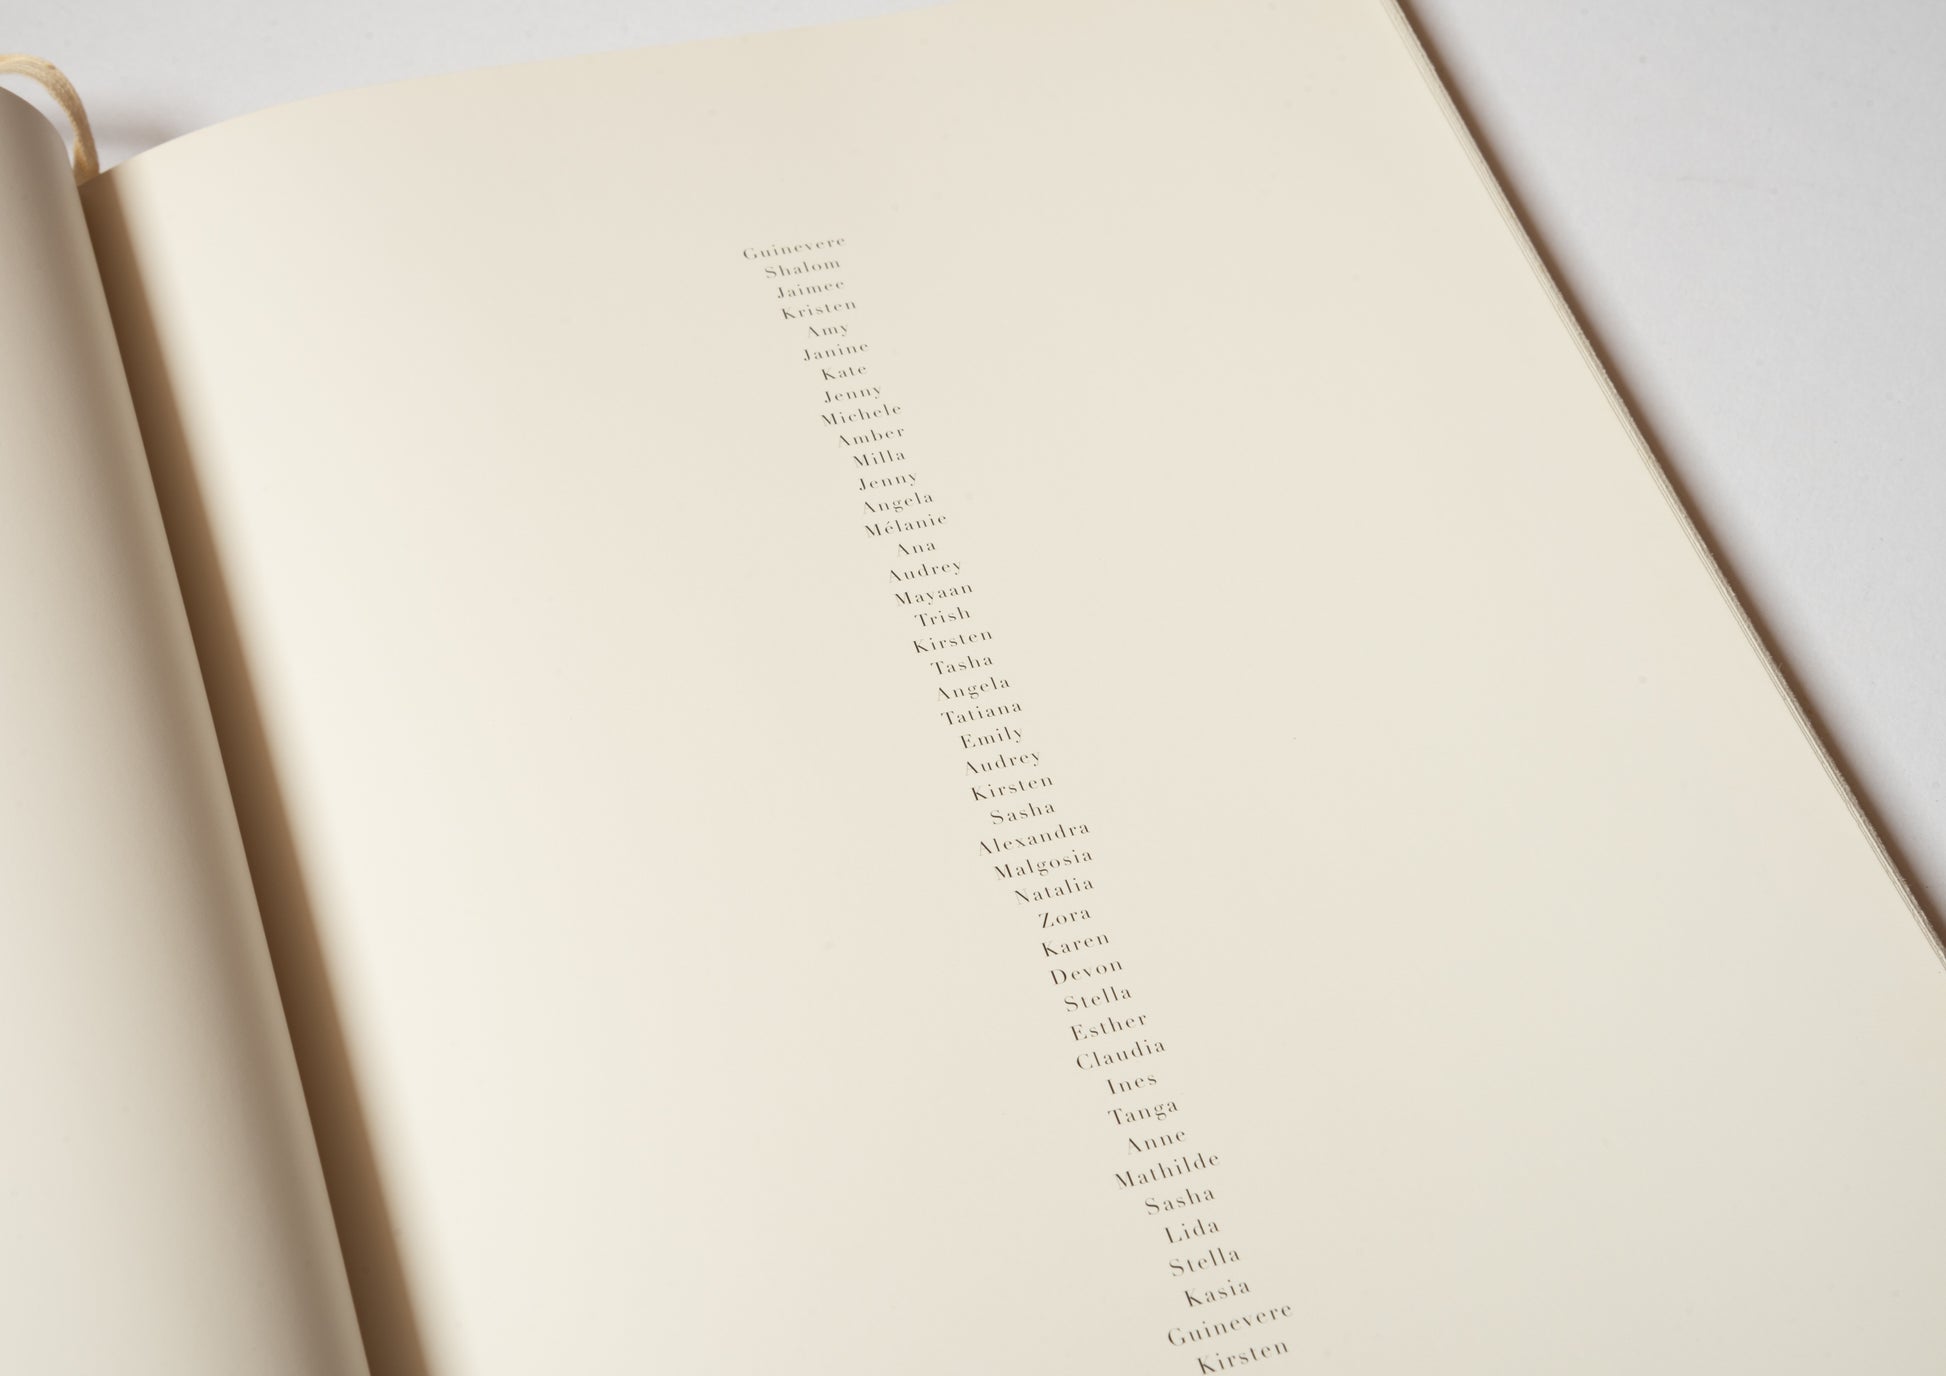 Guinevere
Shalom
Jaimee
Kristen
Amy
Janine
Kate
Jenny
Michele
Amber
Milla
Jenny
Angela
Mélanie
Ana
Audrey
Mayaan
Trish
Kirsten
Tasha
Angela
Tatiana
Emily
Audrey
Kirsten
Sasha
Alexandra
Malgosia
Natalia
Zora
Karen
Devon
Stella
Esther
Claudia
Ines
Tanga
Anne
Mathilde
Sasha
Lida
Stella
Kasia
Guinevere
Kirsten